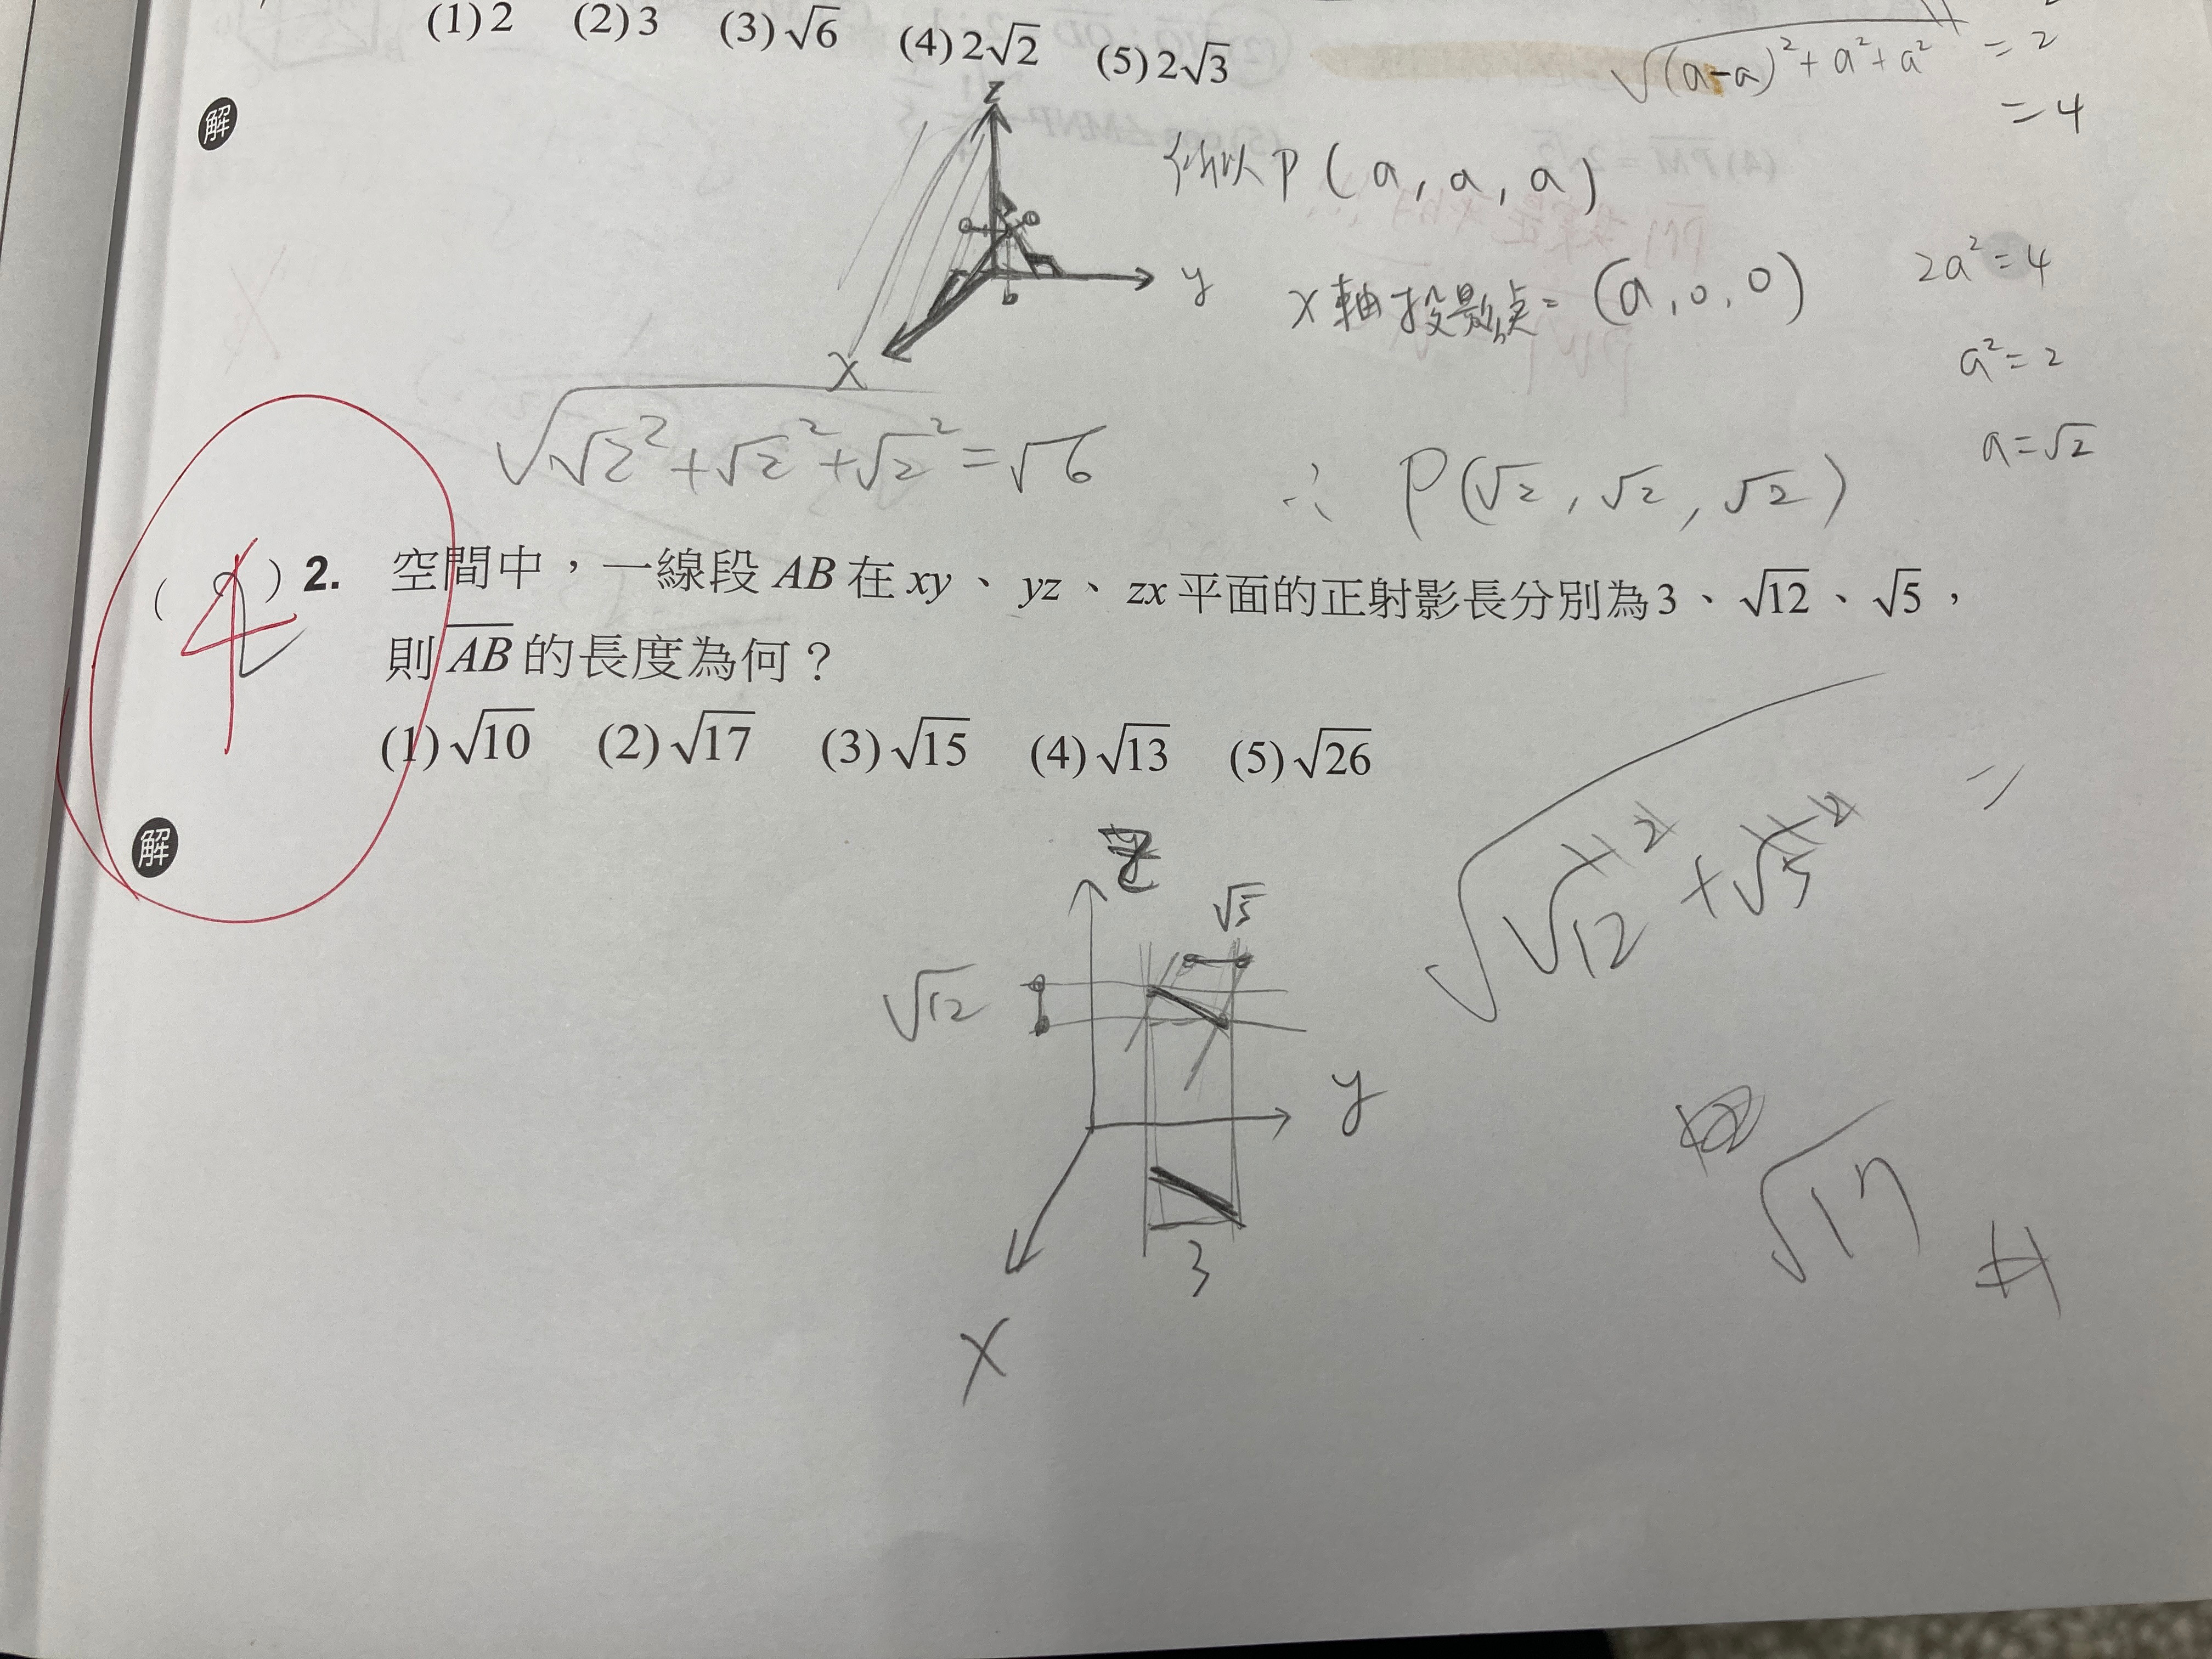 (1) 2 (2) 3 (3) √6 (4) 2√2 (5) 2√3
√(a-a)²+a²+a² = 2
= 4
解
z
y
x
所以 P (a, a, a)
x軸投影点= (a, 0, 0)
2a²=4
a²=2
a=√2
√√2²+√2²+√2² = √6
∴ P(√2, √2, √2)
( 2 ) 2. 空間中，一線段 AB 在 xy、yz、zx 平面的正射影長分別為 3、√12、√5，
4
則 AB 的長度為何？
(1) √10 (2) √17 (3) √15 (4) √13 (5) √26
解
z
√5
√12
y
3
x
√√12²+√5² =
√17